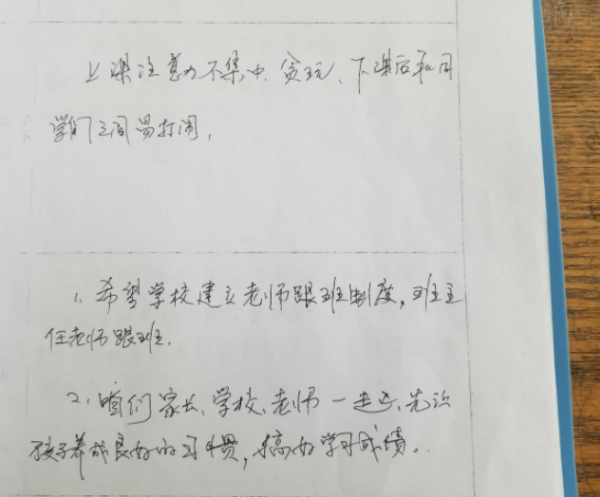 上课注意力不集中、贪玩、下课后和同
学们之间易打闹,
1、希望学校建立老师跟班制度,班主
任老师跟班.
2、咱们家长、学校、老师一起
孩子养成良好的习惯,搞好学习成绩..